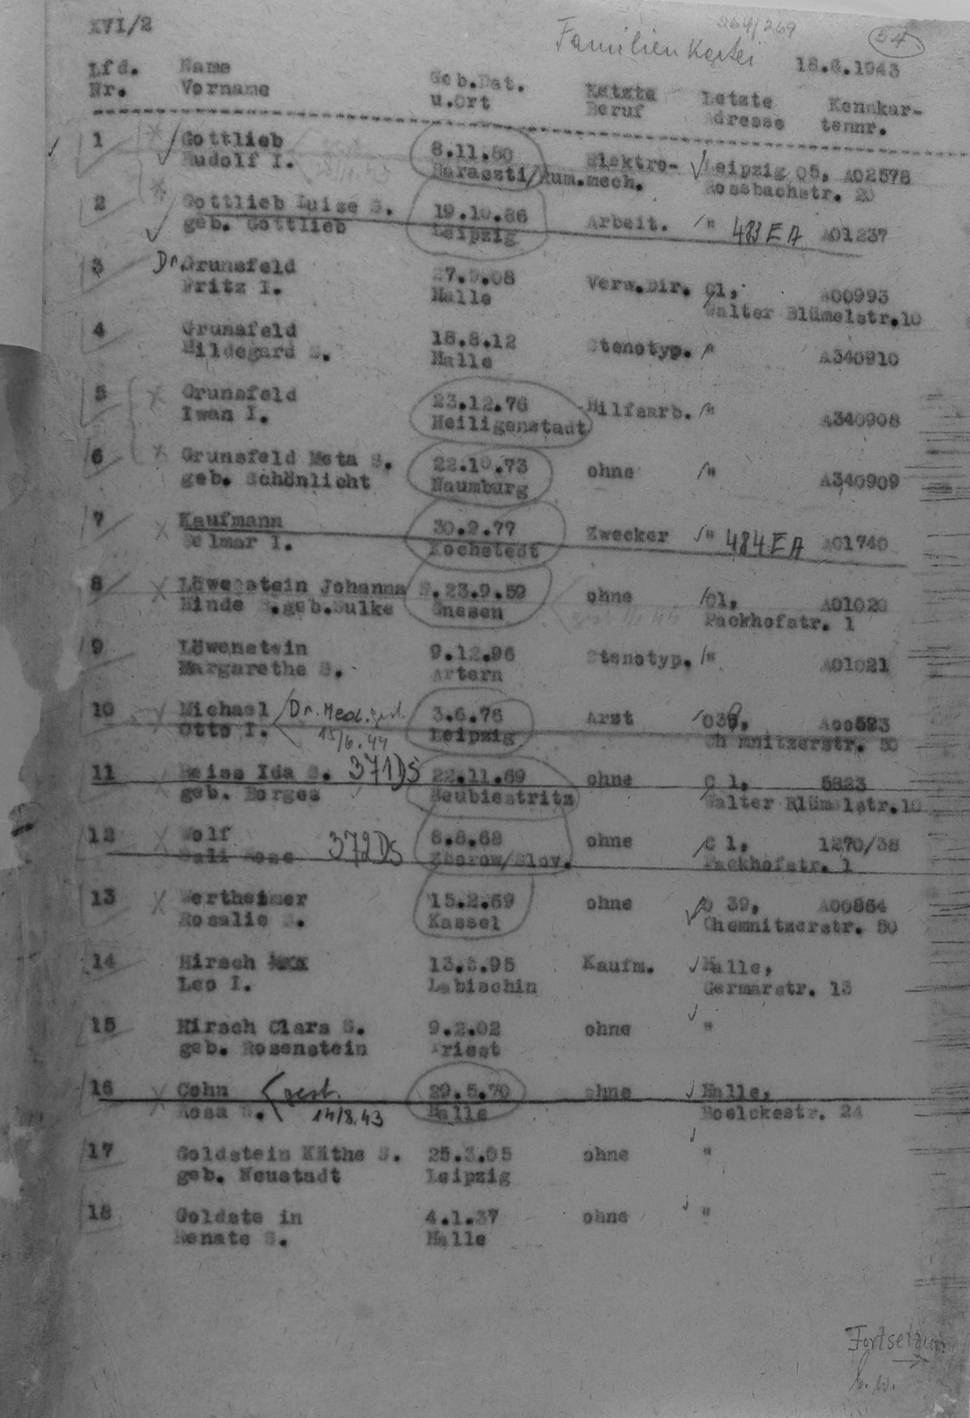 XVI/2
Familien Kartei
264/269
54
18.6.1943
Lfd. Name Geb.Dat. Letzte Letzte Kennkar-
Nr. Vorname u.Ort Beruf Adresse tennr.
1 Gottlieb 8.11.80 Elektro- Leipzig O5, A02578
Rudolf I. Haraszti/Rum. mech. Rossbachstr. 20
2 Gottlieb Luise S. 19.10.86 Arbeit. " 483 EA A01237
geb. Gottlieb Leipzig
3 Dr. Grunsfeld 27.9.08 Verw.Dir. C1, A00993
Fritz I. Halle Walter Blümelstr.10
4 Grunsfeld 18.8.12 Stenotyp. " A340910
Hildegard S. Halle
5 Grunsfeld 23.12.76 Hilfsarb. " A340908
Iwan I. Heiligenstadt
6 Grunsfeld Meta S. 22.10.73 ohne " A340909
geb. Schönlicht Naumburg
7 Kaufmann 30.9.77 Zwecker " 484 EA A01740
Selmar I. Kochstedt
8 Löwenstein Johanna S. 23.9.59 ohne C1, A01020
Hinde S.geb.Sulke Gnesen Packhofstr. 1
9 Löwenstein 9.12.96 Stenotyp. " A01021
Margarethe S. Artern
10 Michael Dr. Med. gest. 3.6.76 Arzt O39, A00523
Otto I. 15/6.44 Leipzig Chemnitzerstr. 50
11 Reiss Ida S. 371DS 22.11.69 ohne C 1, 5823
geb. Borges Neubiestritz Walter Blümelstr.10
12 Wolf 372DS 8.8.68 ohne C 1, 1270/38
Zborow/Slov. Packhofstr. 1
13 Wertheimer 15.2.69 ohne O 39, A00864
Rosalie S. Kassel Chemnitzerstr. 50
14 Hirsch 13.5.95 Kaufm. Halle,
Leo I. Labischin Germarstr. 13
15 Hirsch Clara S. 9.2.02 ohne "
geb. Rosenstein Triest
16 Cohn gest. 29.5.70 ohne Halle,
Rosa S. 14/8.43 Halle Boelckestr. 24
17 Goldstein Käthe S. 25.3.05 ohne "
geb. Neustadt Leipzig
18 Goldste in 4.1.37 ohne "
Renate S. Halle
Fortsetzung
b. w.